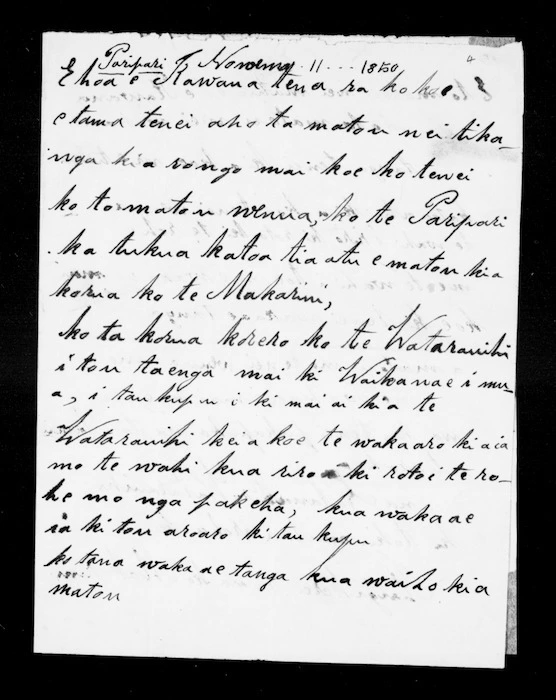 Paripari Novemy 11 1850
E hoa e Kawana tena ra ko koe
e tama tenei ano ta matou nei tika-
nga kia rongo mai koe ko tenei
ko to matou wenua, ko te Paripari
ka tukua katoa tia atu e matou kia
korua ko te Makarini,
ko ta korua korero ko te Wataranihi
i tou taenga mai ki Waikanae i mu-
a, i tau kupu i ki mai ai kia te
Wataranihi kei a koe te wakaaro ki aia
mo te wahi kua riro ki roto i te ro-
he mo nga pakeha, kua wakaae
ia ki tou aroaro ki tau kupu
ko tana wakaaetanga kua waiho kia
matou